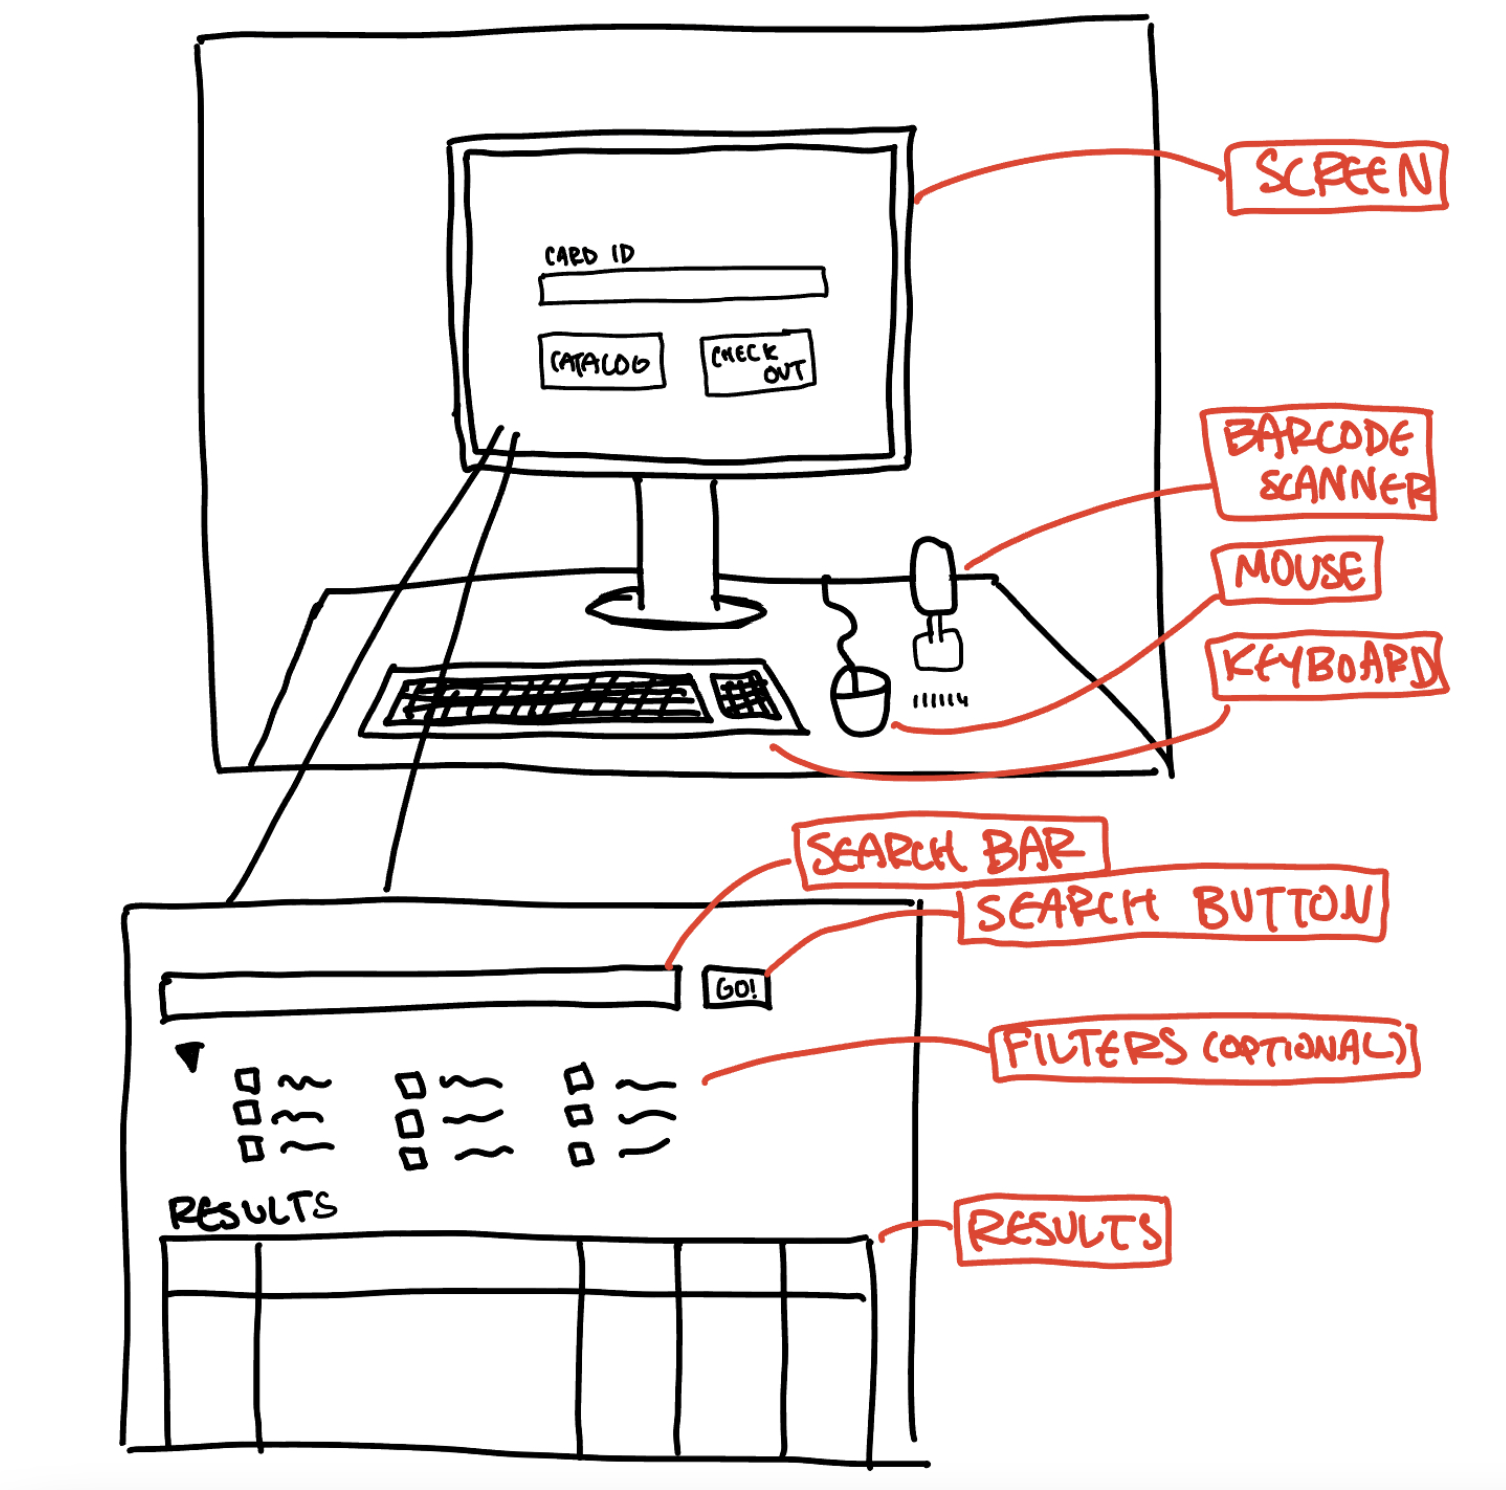 SCREEN
CARD ID
CATALOG
CHECK
OUT
BARCODE
SCANNER
MOUSE
KEYBOARD
SEARCH BAR
SEARCH BUTTON
GO!
FILTERS (OPTIONAL)
RESULTS
RESULTS